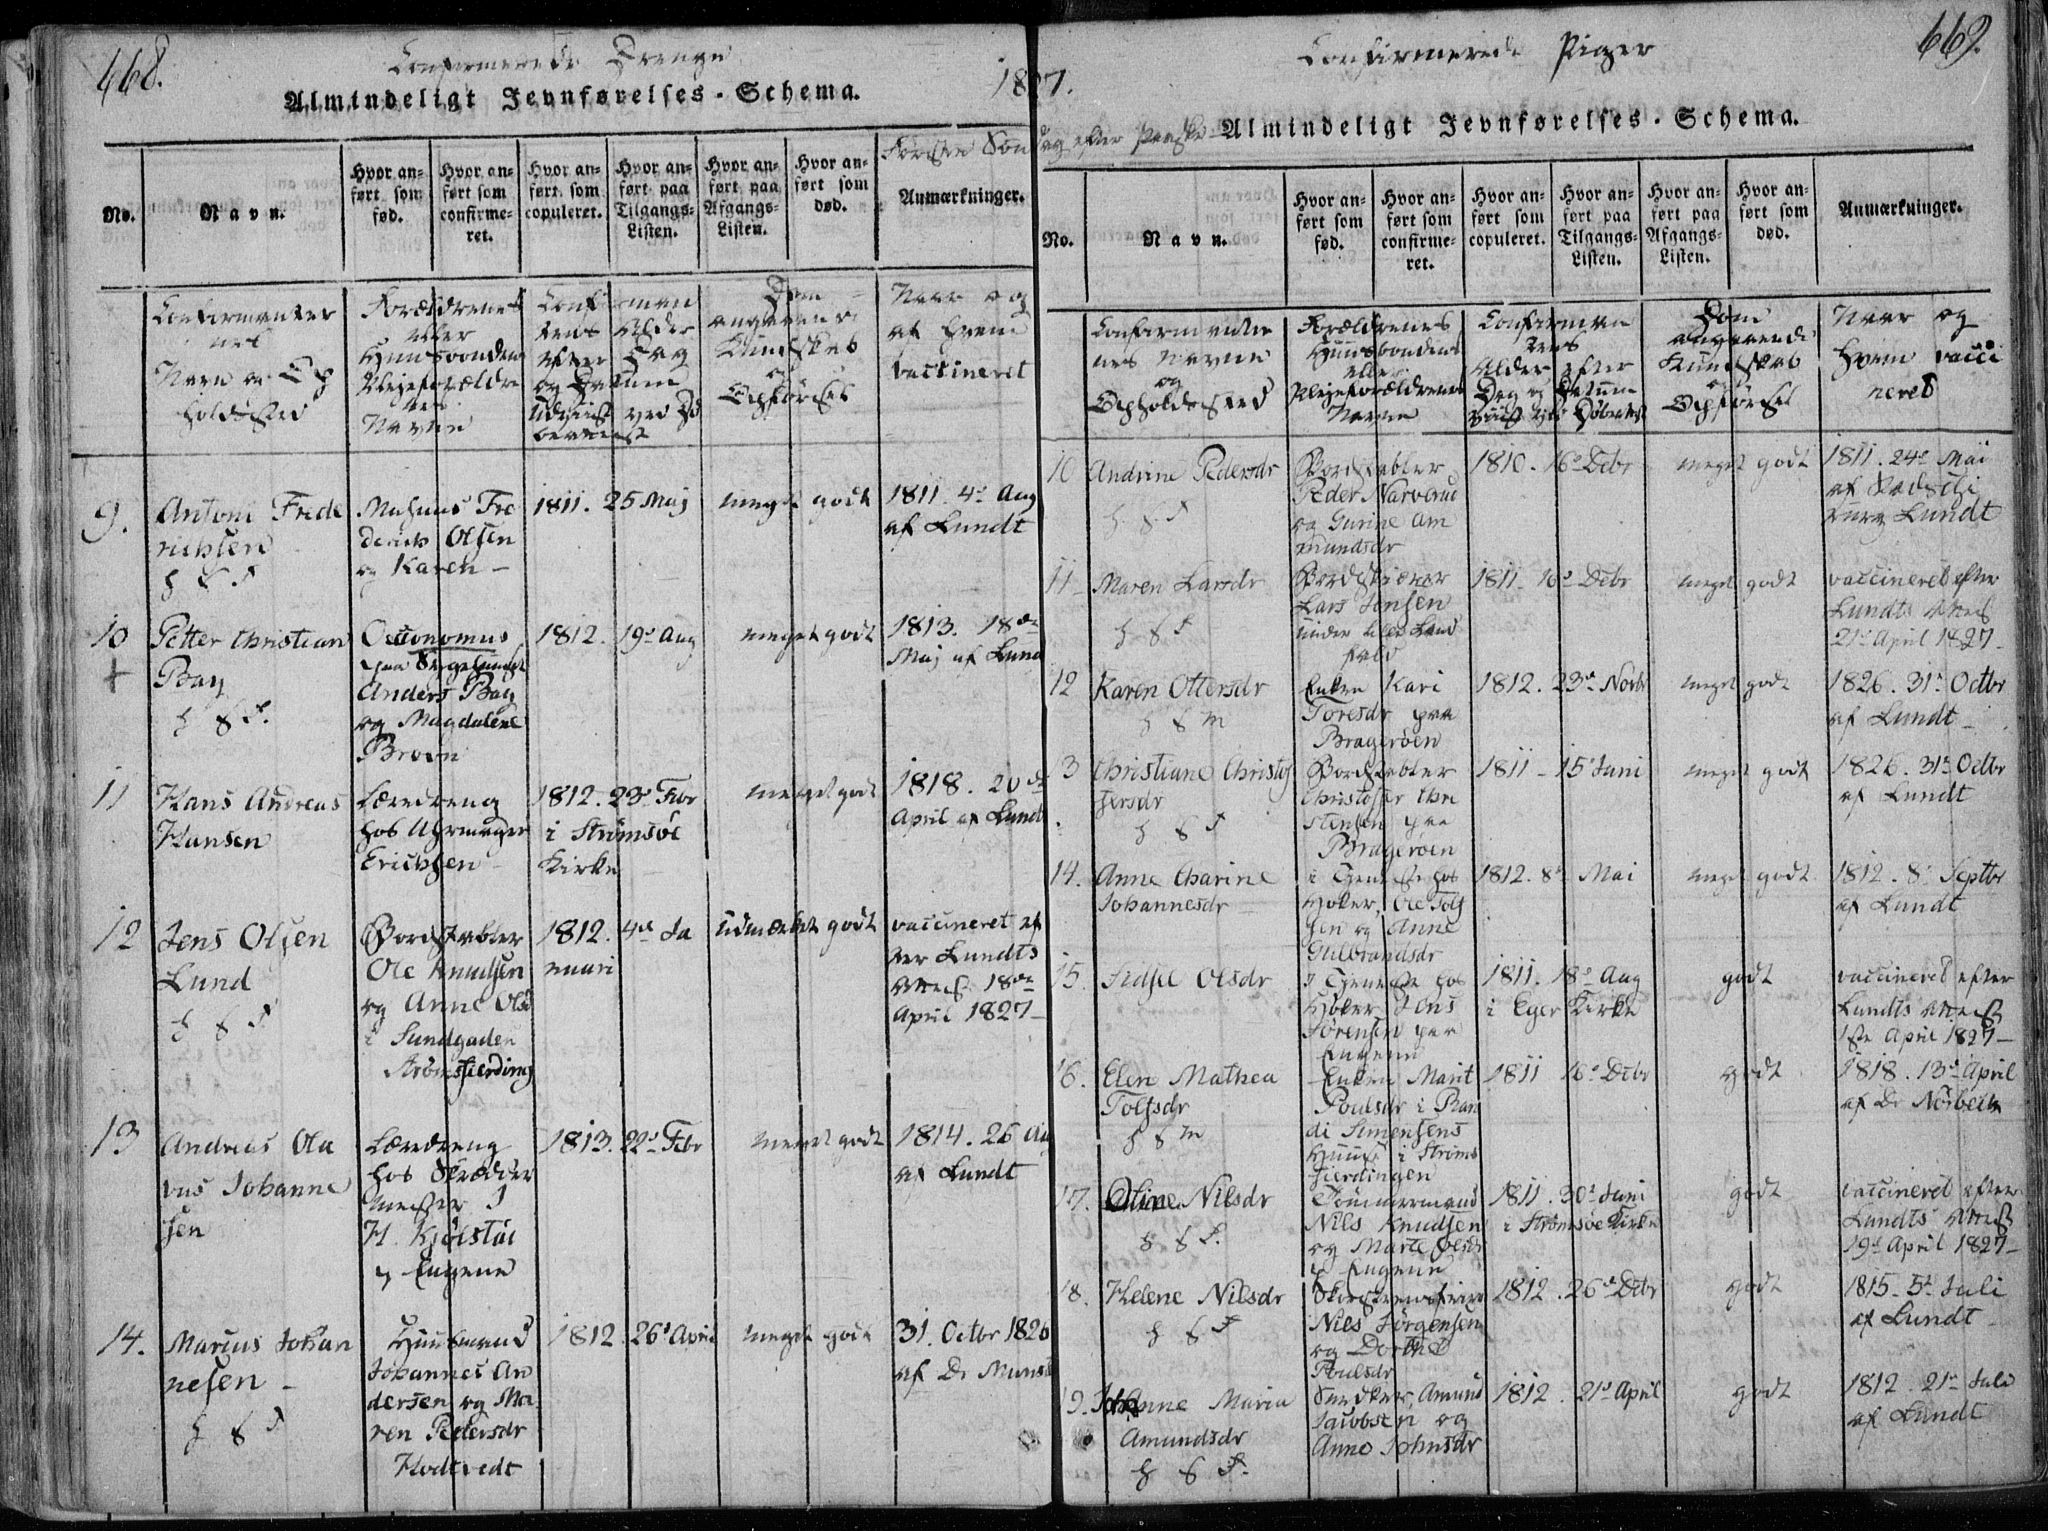 668.
Confirmerede Drenge
1827.
Almindeligt Jevnførelses-Schema.
Første Søndag efter Paaske
No.
Navn.
Hvor anført som fød.
Hvor anført som confirmeret.
Hvor anført som copuleret.
Hvor anført paa Tilgangs-Listen.
Hvor anført paa Afgangs-Listen.
Hvor anført som død.
Anmærkninger.
Confirmanter
nes
Navn og Op
holdsted
Forældrenes
eller
Huusbondens
Plejeforældre
nes
Navne
Confirman
tens Alder
efter Dag
og Datum
Udviist ved Dø
beattest
Dom
angaaende
Kundskab
og
Opførsel
Naar og
af hvem
vaccineret
9.
Antoni Frede
richsen
h h F
Mathias Fre
derich Olsen
og Karen -
1811. 25 Maj
meget godt
1811. 4de Aug
af Lundt
10
+
Petter Christian
Bay
h h F.
Oeconomus
paa Sygehuuset
Anders Bay
og Magdalene
Broon
1812. 19de Aug
meget godt
1813. 18de
Maj af Lund
11
Hans Andreas
Hansen
Læredreng
hos Uhrmager
Erichsen
1812. 23de Febr
i Strømsøe
Kirke
meget godt
1818. 20de
April af Lund
12
Jens Olsen
Lund
h h F
Bordstabler
Ole Knudsen
og Anne Olsd
i Sundgaden
Strømsfierding
1812. 4de Ja
nuari
Udmærket godt
vaccineret ef
ter Lundts
Attest 18de
April 1827-
13
Andreas Ola
vus Johanne
sen
Læredreng
hos Skrædder
mester J
H. Kjølstad
p Engene
1813. 22de Febr
meget godt
1814. 26 Au
af Lundt
14.
Marius Johan
nesen -
h h F
Huusmand
Johannes An
dersen og Ma
ren Pedersdr
Hodtvedt
1812. 26de April
meget godt
31. Octbr 1826
af Dr Muns
669.
Confirmerede Piger
Almindeligt Jevnførelses-Schema.
No.
Navn.
Hvor anført som fød.
Hvor anført som confirmeret.
Hvor anført som copuleret.
Hvor anført paa Tilgangs-Listen.
Hvor anført paa Afgangs-Listen.
Hvor anført som død.
Anmærkninger.
Confirmanter
nes Navne
og
Opholdssted
Forældrenes
Huusbondens
eller
Plejeforældrenes
Navne
Confirman
tens
Alder efter
Dag og Datum
Dom
angaaende
Kundskab
og
Opførsel
Naar og
hvem vacci
neret
10
Andrine Pedersdr
h h F
Bordstabler
Peder Narverud
og Gurine Am
mundsdr
1810. 16de Debr
meget godt
1811. 24de Mai
af
Lundt
11
Maren Larsdr
h h F
Lars Jensen
under
1811. 16de Debr
meget godt
vaccineret efter
Lundts Attest
21de April 1827-
12
Karen Ottersdr
h h M
Enken Kari
Toresdr paa
Bragerøen
1812. 23de Novbr
meget godt
1826. 31te Octbr
af Lundt-
13
Christiane Christof
fersdr
h h F
Bordstabler
Christoffer Chri
stensen paa
Bragerøen
1811 - 15de Juni
meget godt
1826. 31te Octbr
af Lundt
14.
Anne Charine
Johannesdr
i Tjeneste hos
Høker, Ole Tolf
sen og Anne
Gulbrandsdr
1812. 8de Mai
meget godt
1812. 8de Septbr
af Lundt
15.
Sidsel Olsdr
I Tjeneste hos
Høker Jens
Sørensen paa
Engene
1811. 18de Aug
i Eger Kirke
godt
vaccineret efter
Lundts Attest
1ste April 1827-
16.
Elen Mathea
Tolfsdr
h h M
Enken Marit
Poulsdr i Ran
di Simensens
Huus i Strøms
fierdingen
1811 16de Debr
godt
1818. 13de April
af Dr Nörbech
17.
Oline Nilsdr
h h F.
Tømmermand
Nils Knudsen
og Marte Olsdr
p Engene
1811. 30te Juni
i Strømsøe Kirke
godt
vaccineret efter
Lundts Attest
19de April 1827-
18.
Helene Nilsdr
h h F
Nils Jørgensen
og Dorthe
Poulsdr
1812. 26de Debr
godt
1815. 5te Juli
af Lundt
19.
Johanne Maria
Amundsdr
h h F.
Snedker, Amund
Jacobsen og
Anne Johnsdr
1812. 21de April
godt
1812. 21de Juli
af Lundt